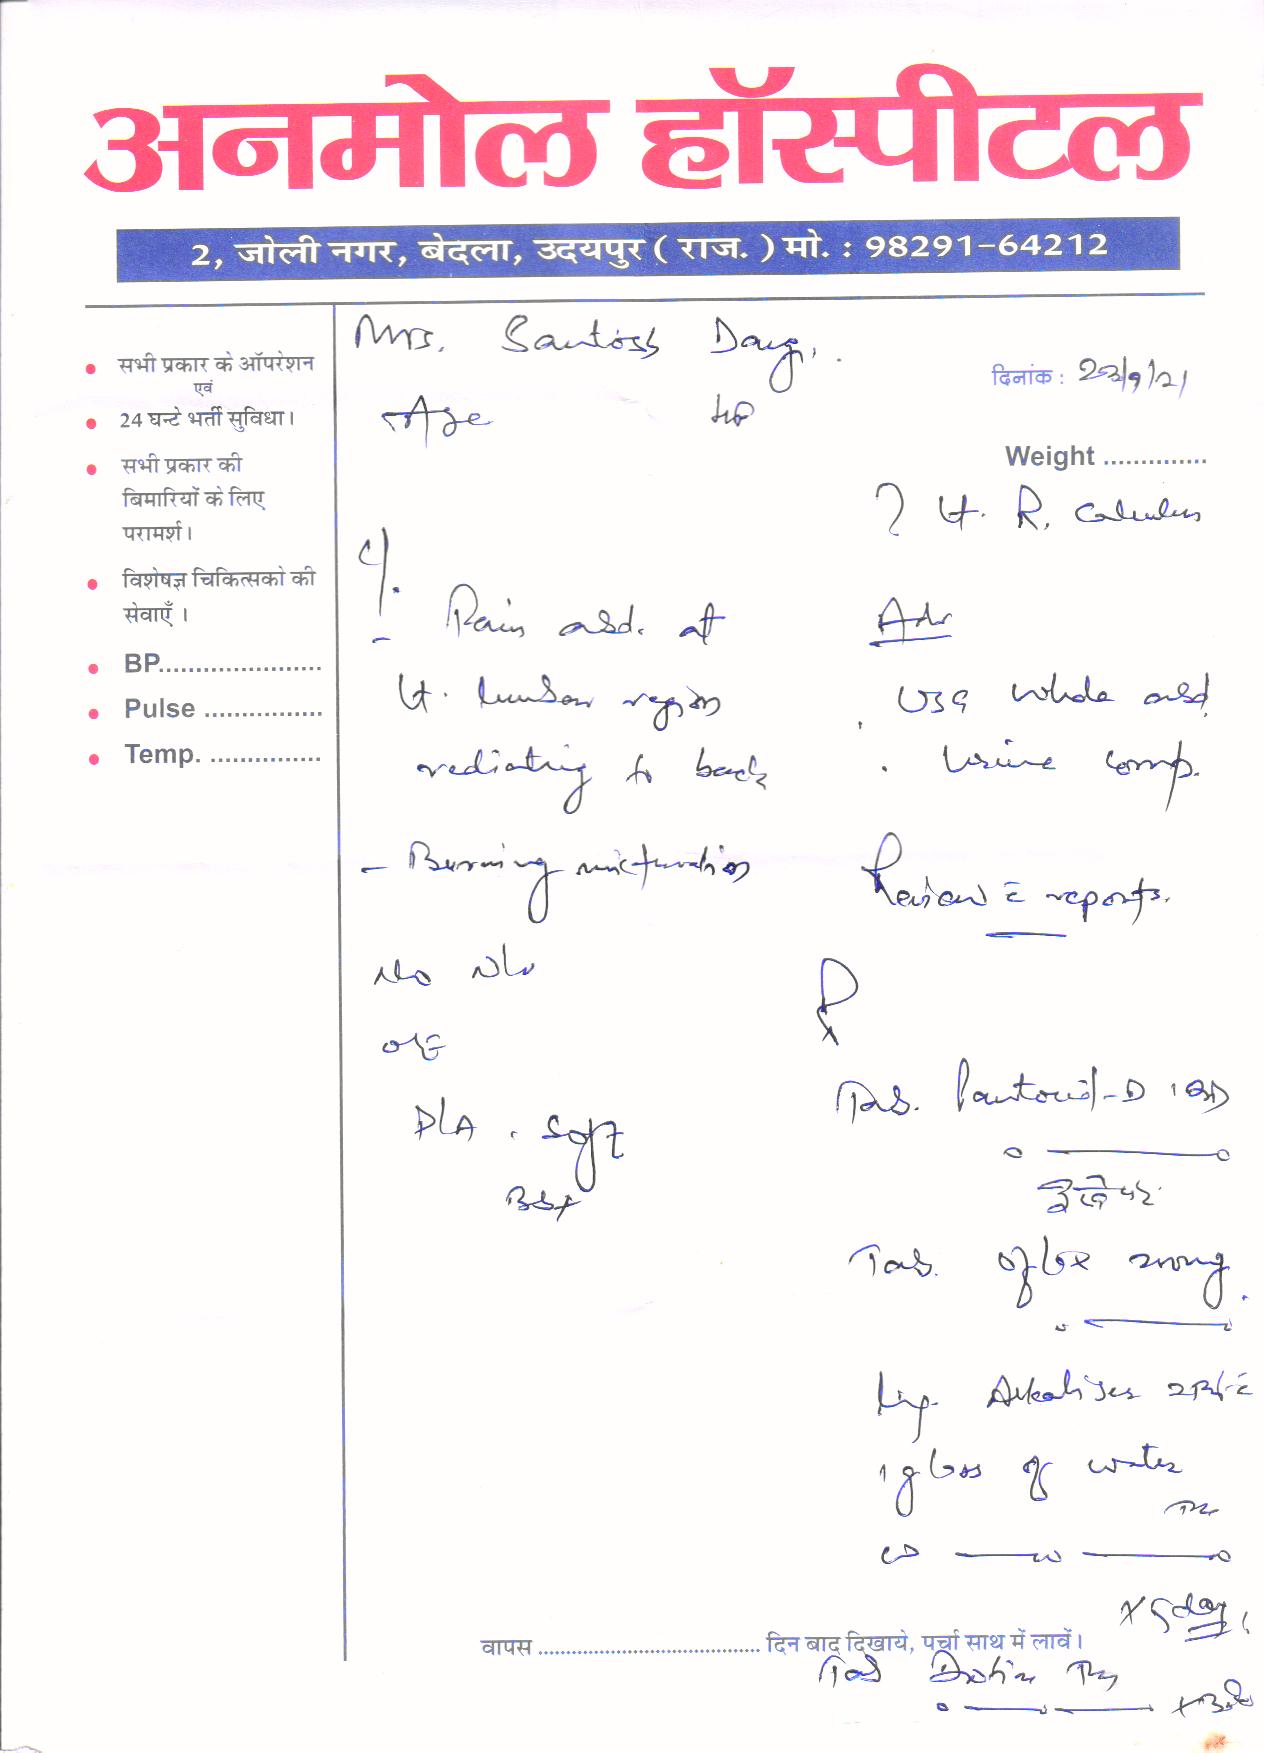 अनमोल हॉस्पीटल
2, जोली नगर, बेदला, उदयपुर ( राज. ) मो. : 98291-64212
• सभी प्रकार के ऑपरेशन
एवं
• 24 घन्टे भर्ती सुविधा।
• सभी प्रकार की
बिमारियों के लिए
परामर्श।
• विशेषज्ञ चिकित्सको की
सेवाएँ ।
• BP......................
• Pulse ................
• Temp. ...............
Mrs. Santosh
दिनांक : 23/9/21
Age
Weight ..............
? Lt. R. Calculus
c/.
- Pain abd. at
Lt. lumbar region
radiating to back
- Burning micturation
No N/v
O/E
P/A . Soft
BS+
Adv
USG Whole abd.
. Urine comp.
Review c̄ reports.
Rx
Tab. Pantocid-D 1BD
Tab. Oflox 200mg
Syp. Alkaliser c̄
1 glass of water
x 5 day
वापस .................................. दिन बाद दिखाये, पर्चा साथ में लावें।
Tab